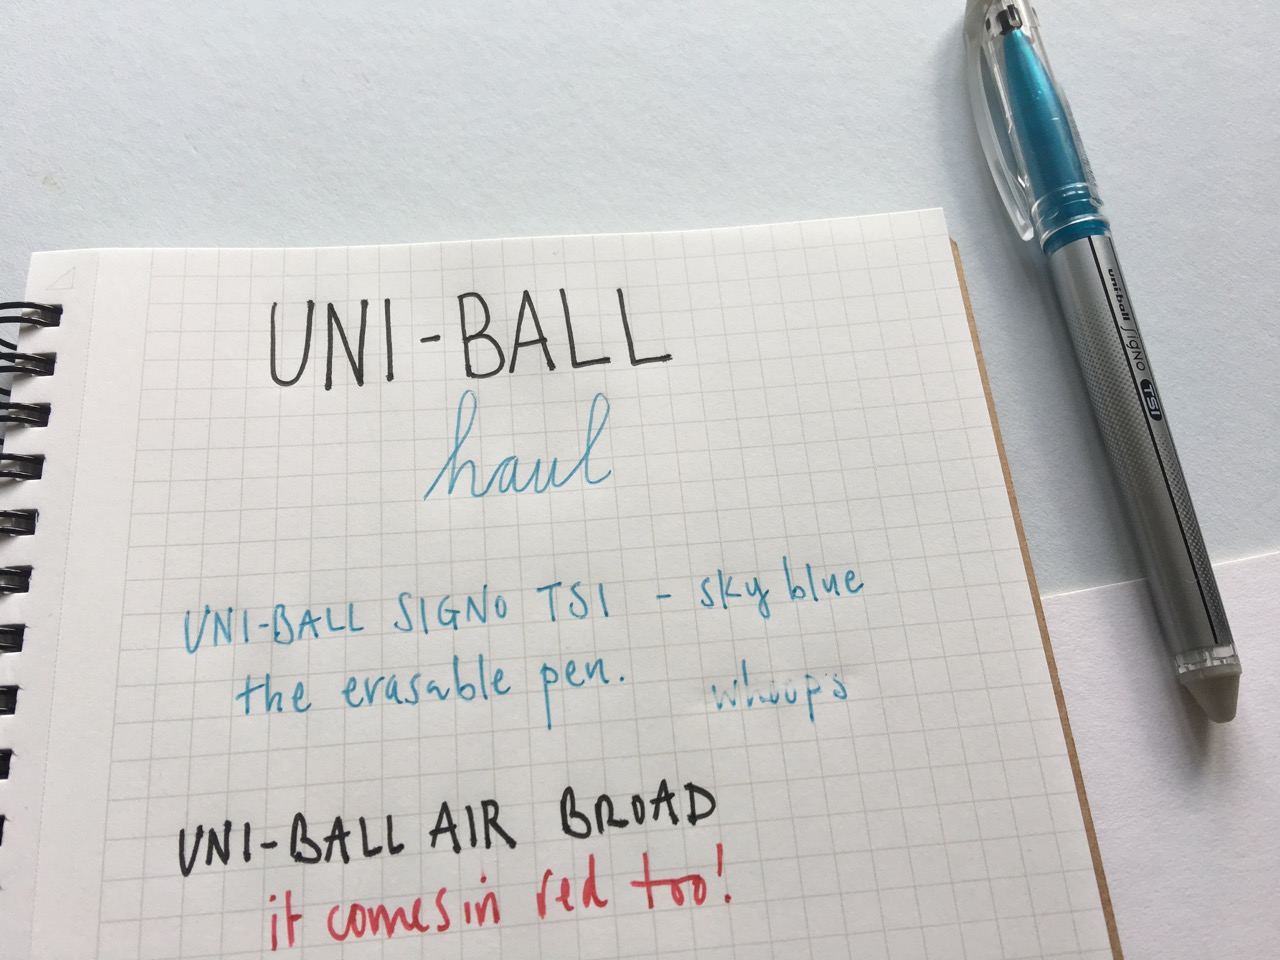 UNI-BALL
haul
UNI-BALL SIGNO TSI - sky blue
the erasable pen. whoops
UNI-BALL AIR BROAD
it comes in red too!
uni-ball SIGNO TSI